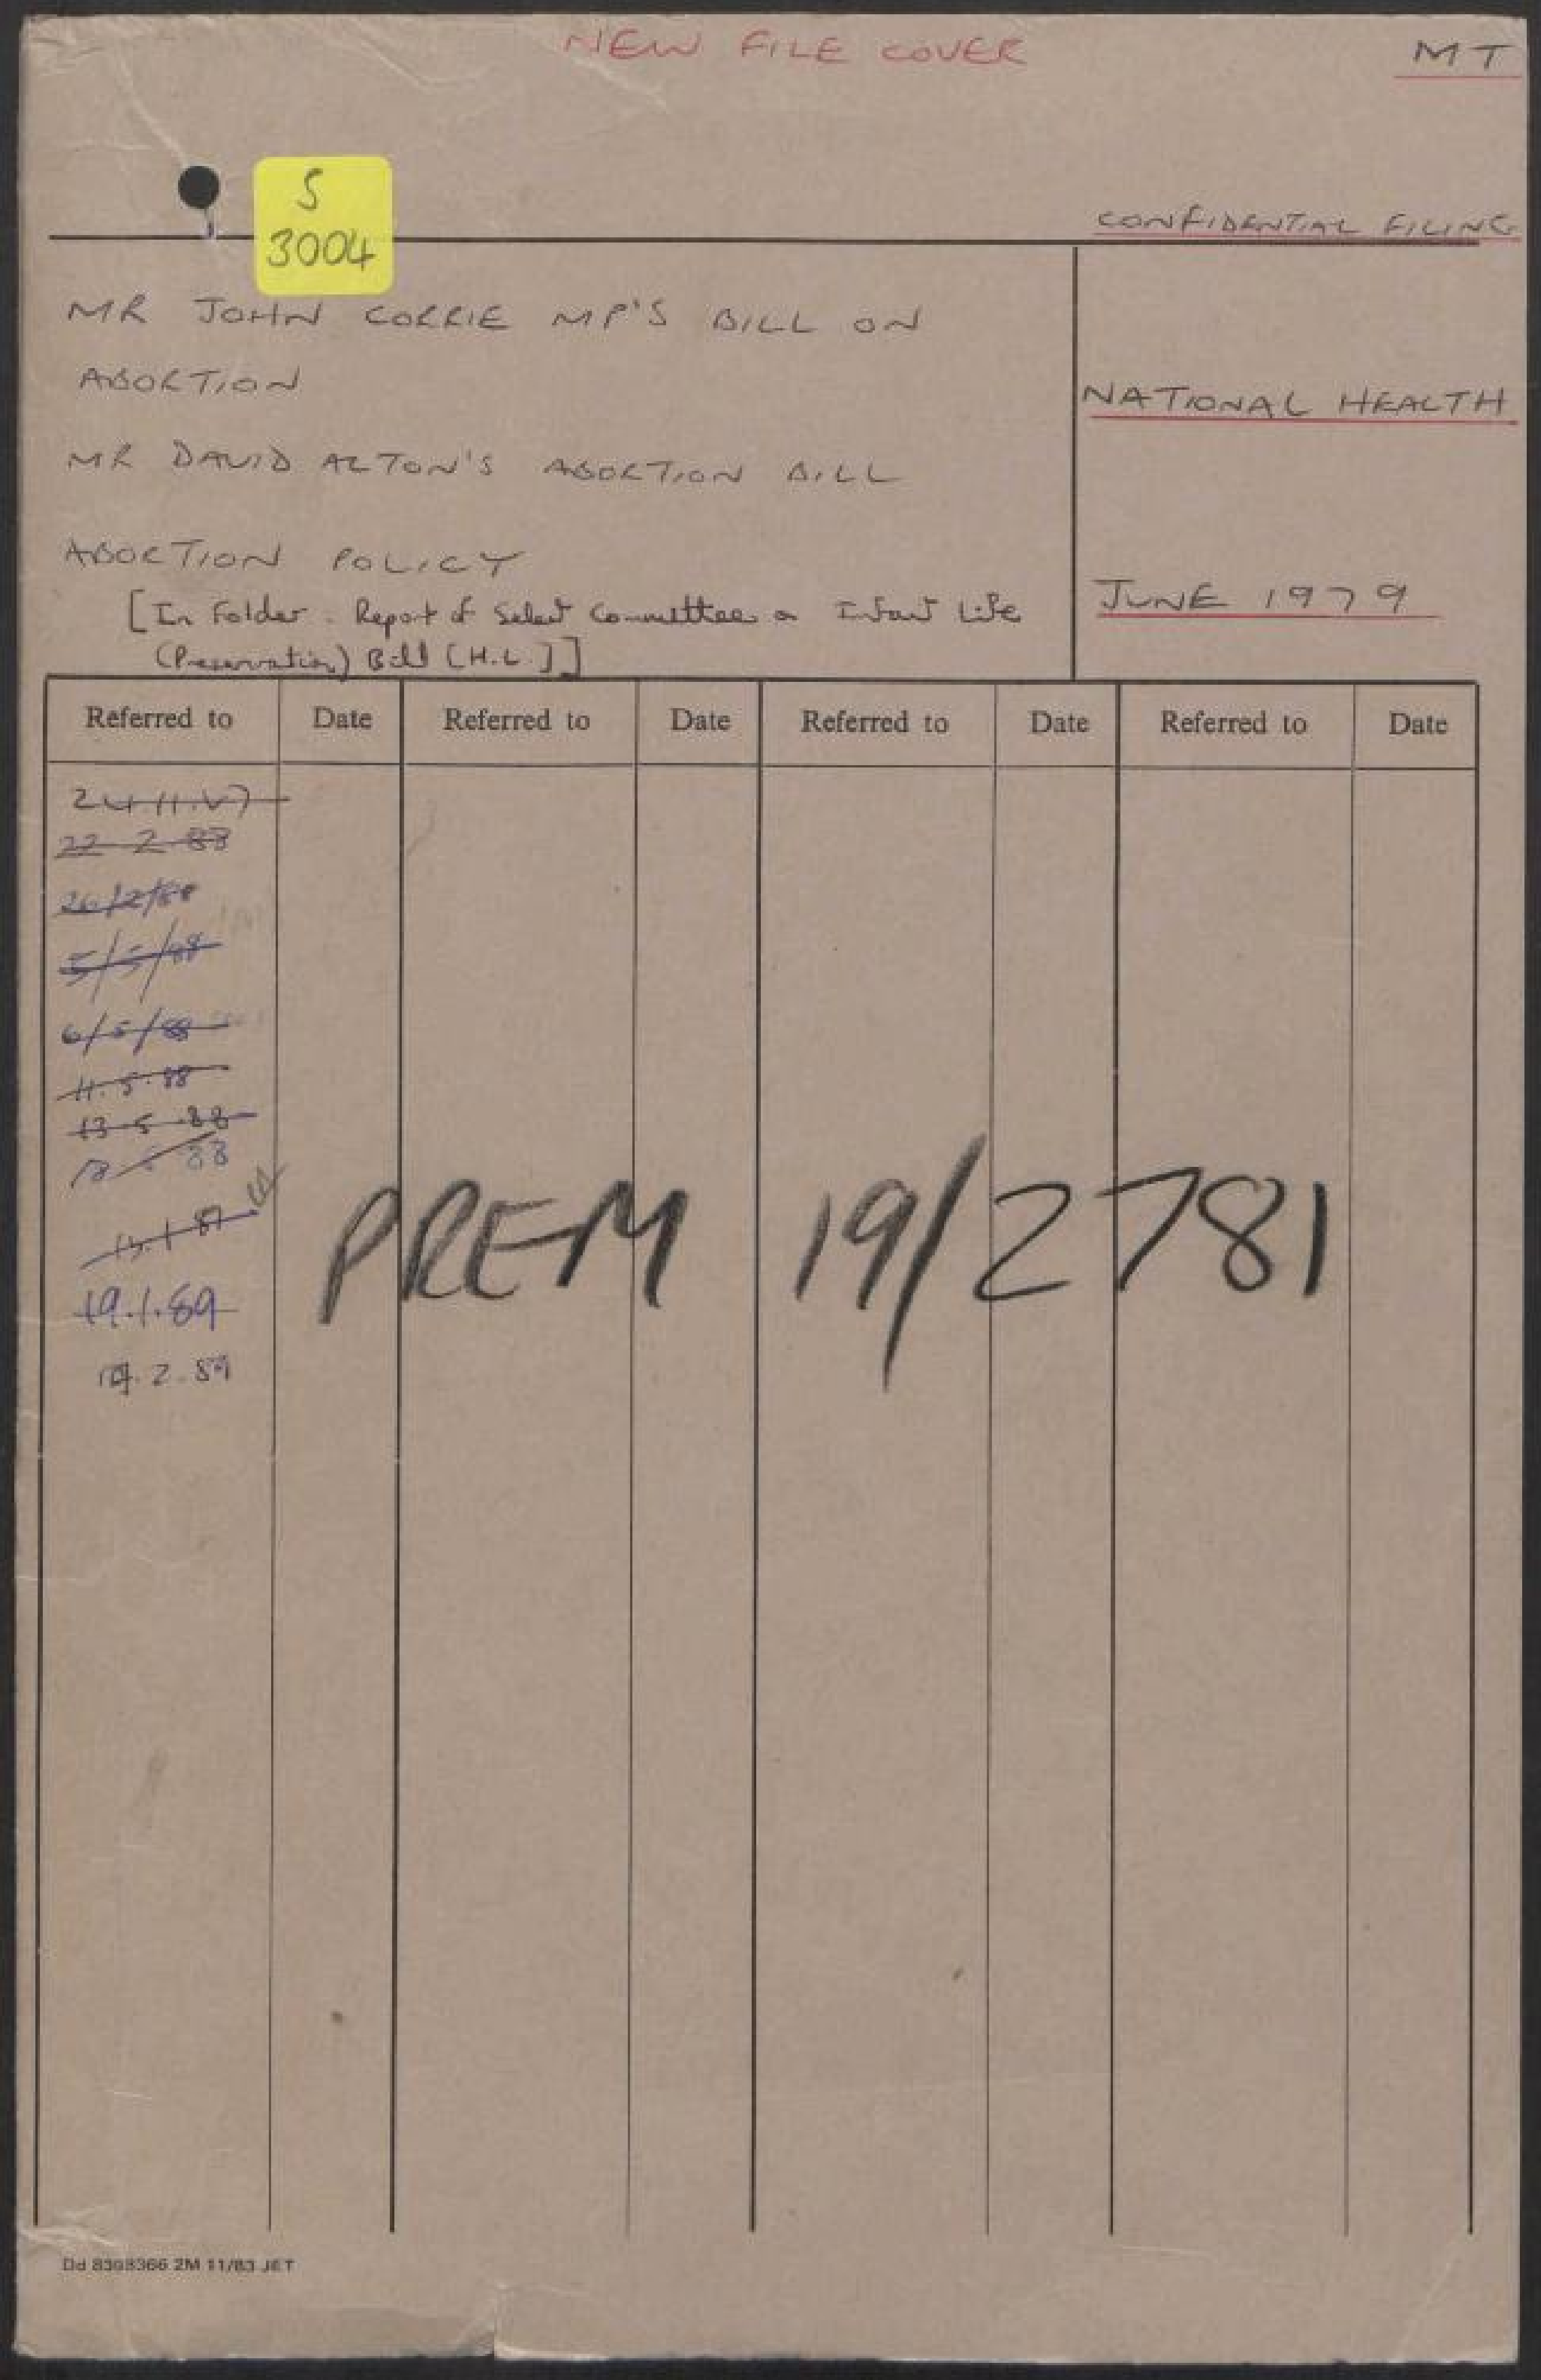 NEW FILE COVER
MT
S
3004
CONFIDENTIAL FILING
MR JOHN CORRIE MP'S BILL ON
ABORTION
NATIONAL HEALTH
MR DAVID ALTON'S ABORTION BILL
ABORTION POLICY
[In Folder : Report of Select Committee on Infant Life
(Preservation) Bill [H.L.]]
JUNE 1979
Referred to Date Referred to Date Referred to Date Referred to Date
22 2 88
26/2/88
5/5/88
6/5/88
11.5.88
13 5 88
13.1.89
19.1.89
2.89
PREM 19/2781
Dd 8398366 2M 11/83 JET